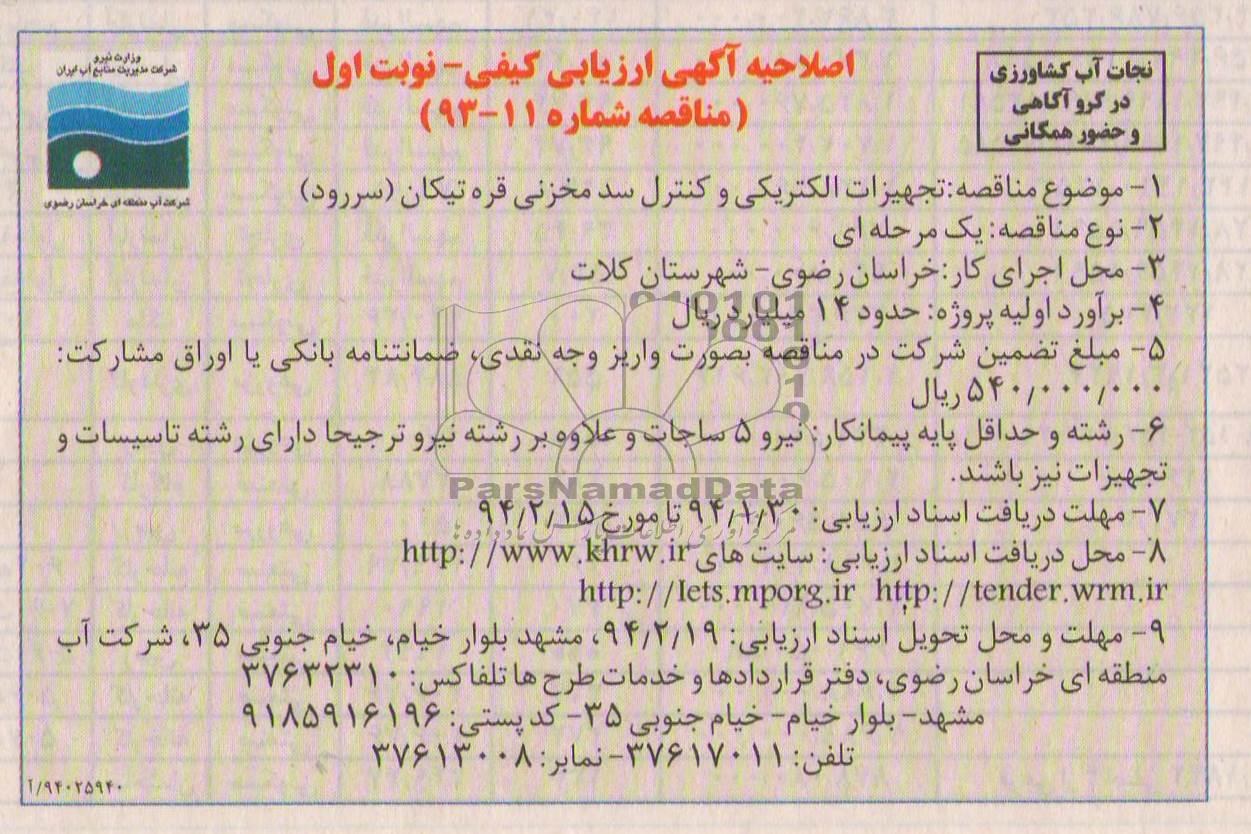 وزارت نیرو
شرکت مدیریت منابع آب ایران
شرکت آب منطقه ای خراسان رضوی
نجات آب کشاورزی
در گرو آگاهی
و حضور همگانی
اصلاحیه آگهی ارزیابی کیفی- نوبت اول
(مناقصه شماره ۱۱-۹۳)
۱- موضوع مناقصه:تجهیزات الکتریکی و کنترل سد مخزنی قره تیکان (سررود)
۲- نوع مناقصه: یک مرحله ای
۳- محل اجرای کار:خراسان رضوی- شهرستان کلات
۴- برآورد اولیه پروژه: حدود ۱۴ میلیارد ریال
۵- مبلغ تضمین شرکت در مناقصه بصورت واریز وجه نقدی، ضمانتنامه بانکی یا اوراق مشارکت:
۵۴۰٫۰۰۰٫۰۰۰ ریال
۶- رشته و حداقل پایه پیمانکار: نیرو ۵ ساجات و علاوه بر رشته نیرو ترجیحا دارای رشته تاسیسات و
تجهیزات نیز باشند.
ParsNamadData
۷- مهلت دریافت اسناد ارزیابی: ۹۴٫۱٫۳۰ تا مورخ ۹۴٫۲٫۱۵
۸- محل دریافت اسناد ارزیابی: سایت های http://www.khrw.ir
http://Iets.mporg.ir http://tender.wrm.ir
۹- مهلت و محل تحویل اسناد ارزیابی: ۹۴٫۲٫۱۹، مشهد بلوار خیام، خیام جنوبی ۳۵، شرکت آب
منطقه ای خراسان رضوی، دفتر قراردادها و خدمات طرح ها تلفاکس: ۳۷۶۳۲۳۱۰
مشهد- بلوار خیام- خیام جنوبی ۳۵- کد پستی: ۹۱۸۵۹۱۶۱۹۶
تلفن: ۳۷۶۱۷۰۱۱- نمابر: ۳۷۶۱۳۰۰۸
۹۴۰۲۵۹۴۰/آ